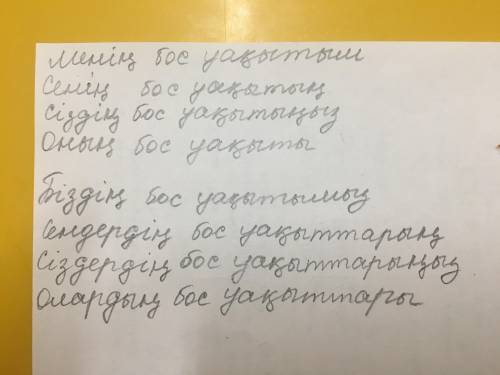 Менің бос уақытым
Сенің бос уақытың
Сіздің бос уақытыңыз
Оның бос уақыты
Біздің бос уақытымыз
Сендердің бос уақыттарың
Сіздердің бос уақыттарыңыз
Олардың бос уақыттары